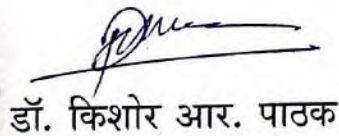 डॉ. किशोर आर. पाठक